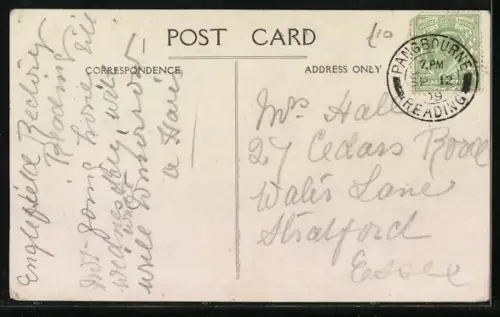 POST CARD
CORRESPONDENCE
ADDRESS ONLY.
PANGBOURNE
7.PM
12
09
READING
Englefield Rectory
Reading
not going home till
wednesday, will
write tomorrow
a Harris
Mrs Hall
27 Cedars Road
Water Lane
Stratford
Essex